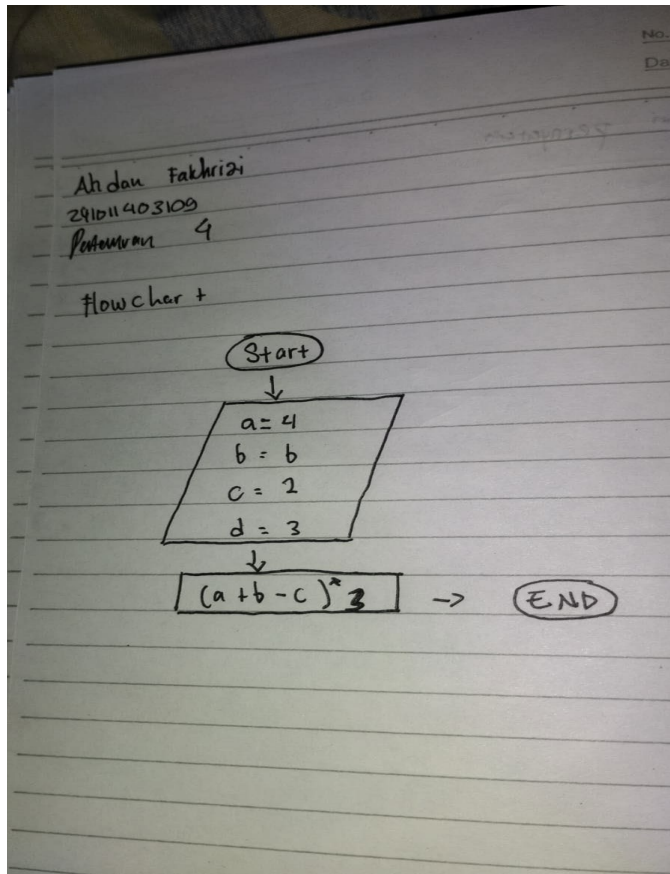 No.
Da
Ahdan Fakhrizi
291011403109
Pertemuan 4
Flowchart
Start
a = 4
b = 6
c = 2
d = 3
(a + b - c) * 3
END